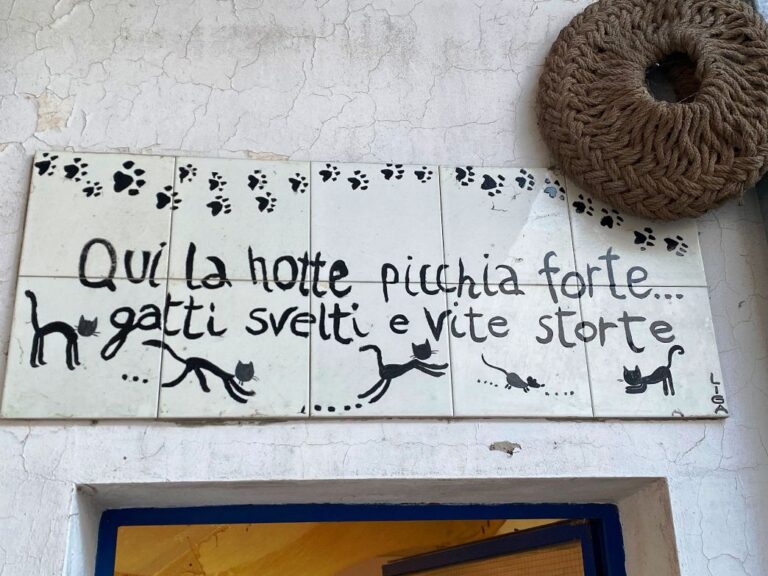 Qui la notte picchia forte...
gatti svelti e vite storte
LIGA